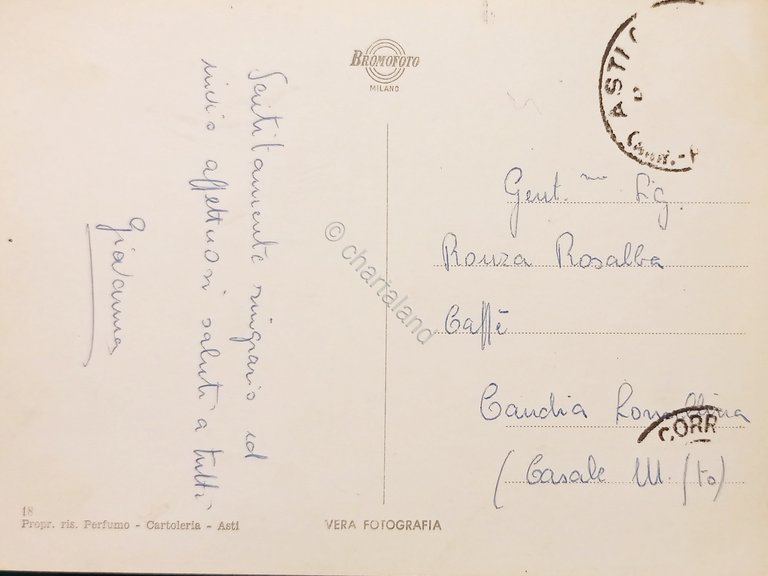 BROMOFOTO
MILANO
Sentitamente ringrazio ed
invio affettuosi saluti a tutti
Giovanna
Gent.ma Sig.
Ronza Rosalba
Caffè
Candia Lomellina
(Casale M. (To)
ASTI
CORR
© chartaland
18
Propr. ris. Perfumo - Cartoleria - Asti
VERA FOTOGRAFIA